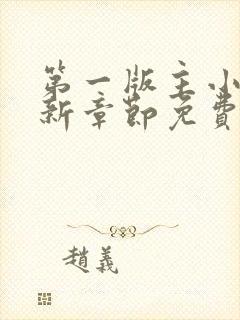 第一版主小
新章節免費
趙義